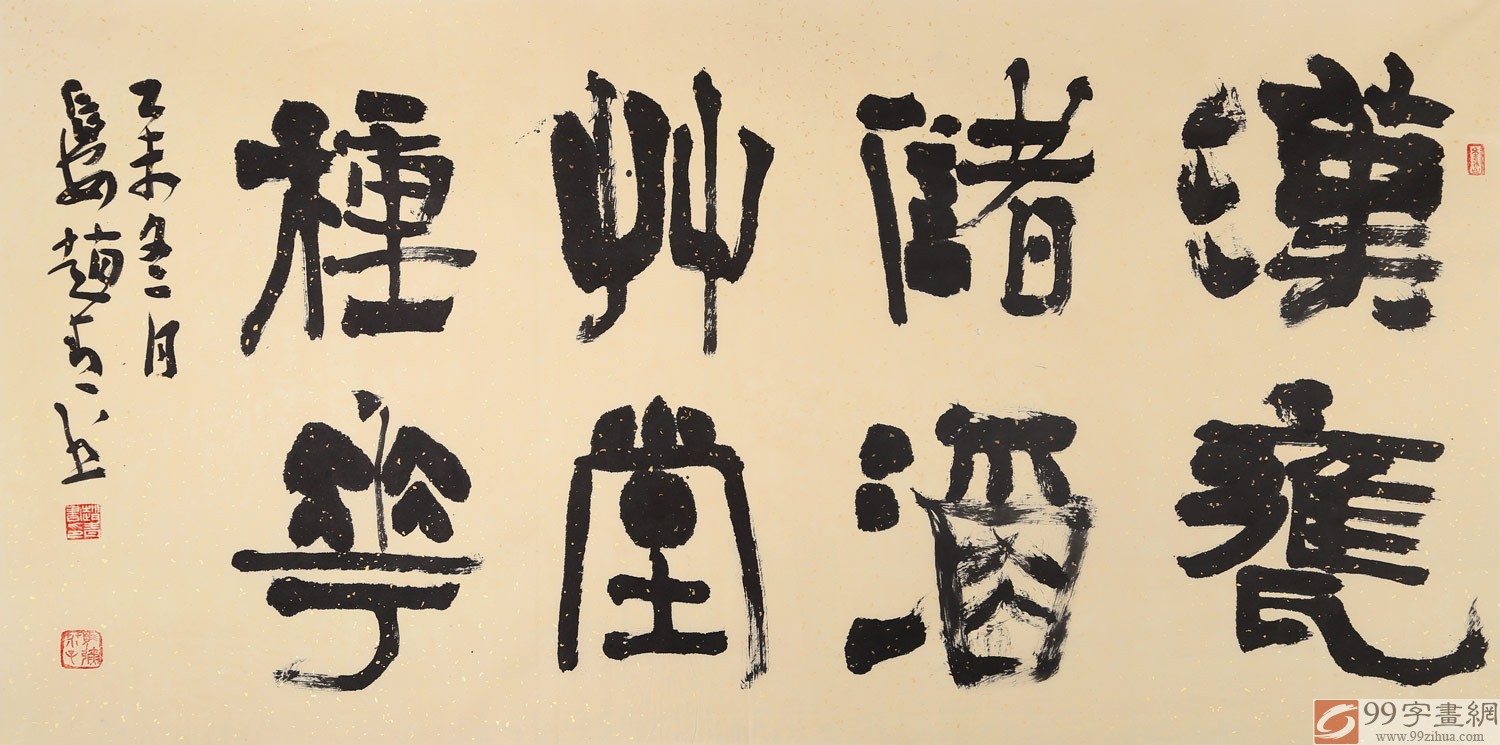 漢甕
儲酒
艸堂
種華
乙未冬月
趙青書
99字畫網
www.99zihua.com